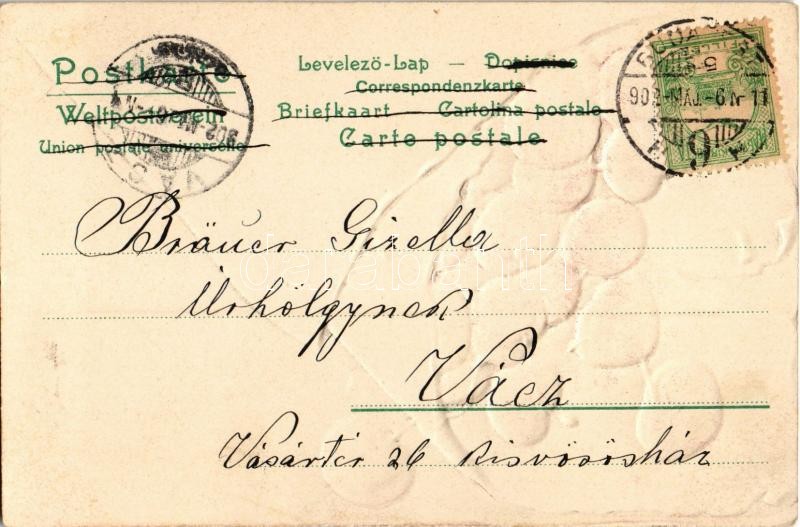 Postkarte
Levelező-Lap — Dopisnice
Correspondenzkarte
Weltpostverein
Briefkaart Cartolina postale
Union postale universelle
Carte postale
902-MÁJ.-6 N-11
VÁCZ
Bräuer Gizella
Úrhölgynek
Vácz
Vásártér 26 Kisvörösház
darabanth